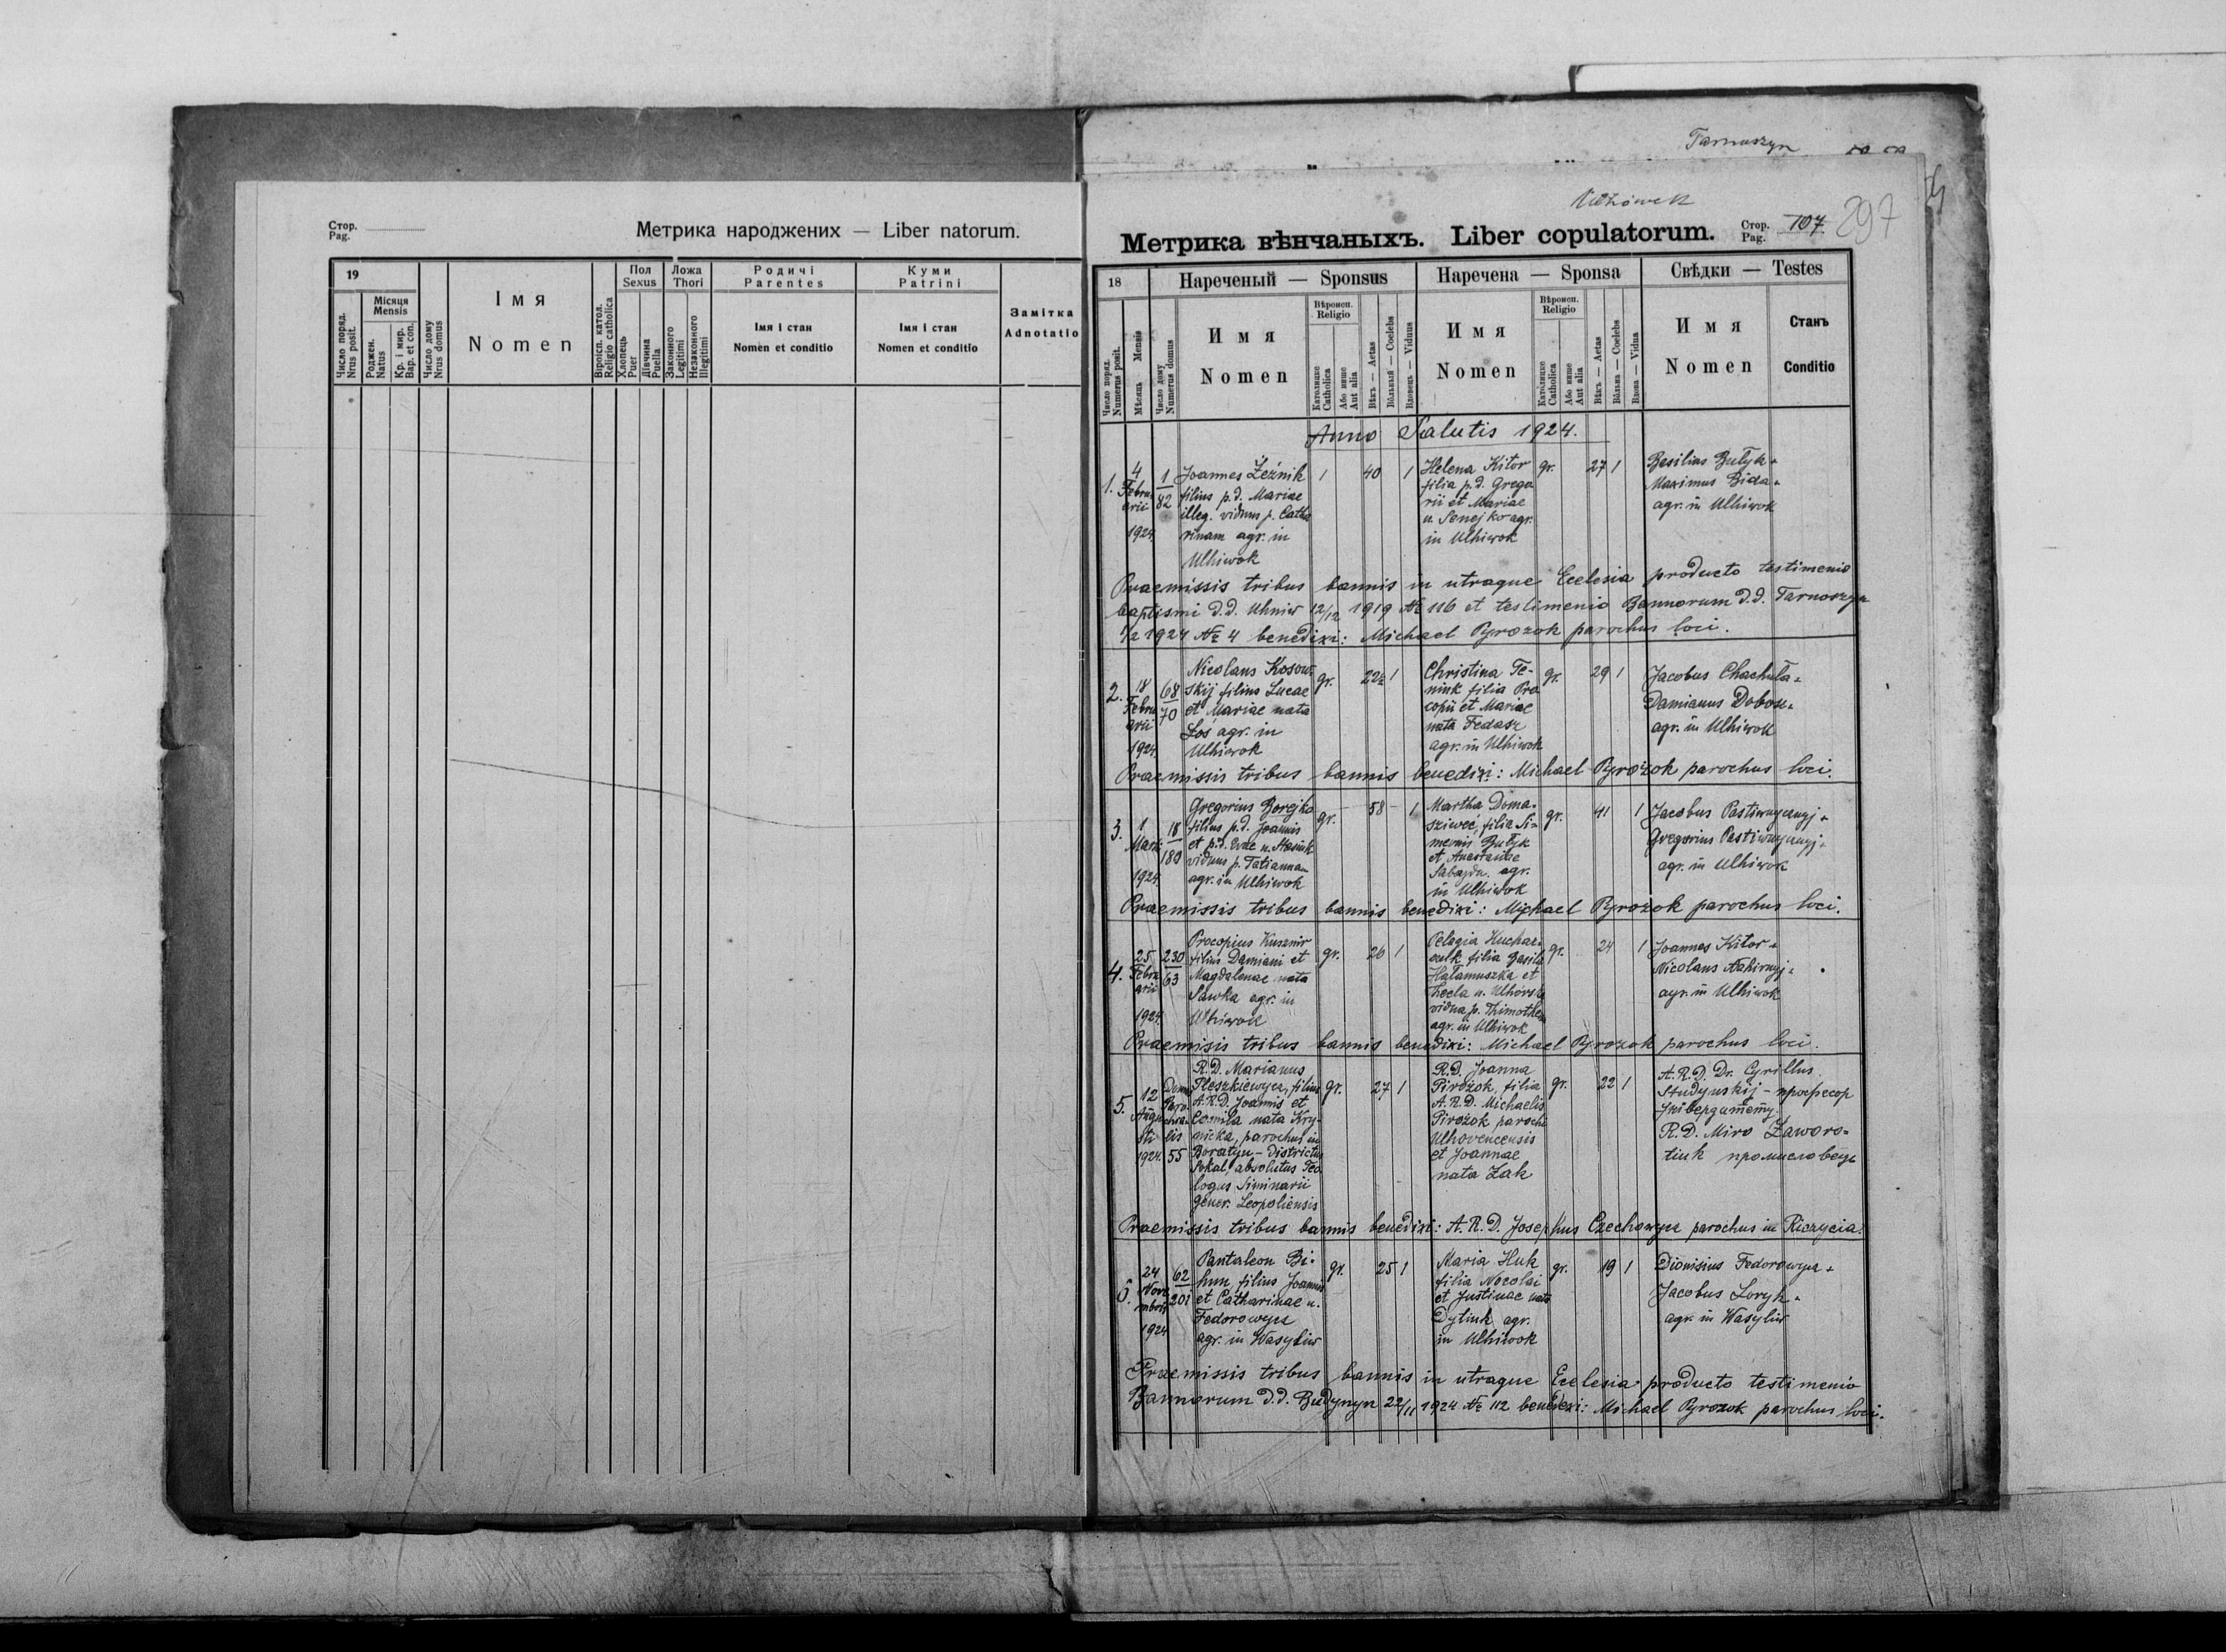 Стор.
Pag.
Метрика народжених — Liber natorum.
19
Число поряд.
Nrus posit.
Місяця
Mensis
Роджен.
Natus
Кр. і мир.
Bap. et con.
Число дому
Nrus domus
Імя
Nomen
Віроісп. катол.
Religio catholica
Пол
Sexus
Хлопець
Puer
Дівчина
Puella
Ложа
Thori
Законного
Legitimi
Незаконного
Illegitimi
Родичі
Parentes
Імя і стан
Nomen et conditio
Куми
Patrini
Імя і стан
Nomen et conditio
Замітка
Adnotatio
Tarnoszyn
Ulhówek
Метрика вѣнчаныхъ. Liber copulatorum.
Стор.
Pag.
107
297
18
Нареченый — Sponsus
Наречена — Sponsa
Свѣдки — Testes
Число поряд.
Numerus posit.
Мѣсяць Mensis
Число дому
Numerus domus
Имя
Nomen
Вѣроисп.
Religio
Католицке
Catholica
Або инше
Aut alia
Вѣкъ — Aetas
Вôльный — Coelebs
Вдовець — Viduus
Имя
Nomen
Вѣроисп.
Religio
Католицке
Catholica
Або инше
Aut alia
Вѣкъ — Aetas
Вôльна — Coelebs
Вдова — Vidua
Имя
Nomen
Станъ
Conditio
Anno Salutis 1924.
1.
4
Febru
arii
1924.
1
82
Joannes Zeźnik
filius p.d. Mariae
illeg. viduus p. Catha
rinam agr. in
Ulhiwok
1
40
1
Helena Kitor
filia p.d. Grego
rii et Mariae
n. Senejko agr.
in Ulhiwok
gr.
27
1
Basilius Butyk
Maximus Bida
agr. in Ulhiwok
Praemissis tribus bannis in utraque Ecclesia producto testimenio
baptismi d.d. Uhniw 12/12 1919 № 116 et testimenio Bannorum d.d. Tarnoszyn
1/2 1924 № 4 benedixi: Michael Pyrożok parochus loci.
2.
18
Febru
arii
1924.
68
70
Nicolaus Kosow
skij filius Lucae
et Mariae nata
Łoś agr. in
Ulhiwok
gr.
22½
1
Christina Te-
niuk filia Pro
copii et Mariae
nata Fedasz
agr. in Ulhiwok
gr.
29
1
Jacobus Chachuła
Damianus Dobosz
agr. in Ulhiwok
Praemissis tribus bannis benedixi: Michael Pyrożok parochus loci.
3.
1
Martii
1924.
18
180
Gregorius Borejko
filius p.d. Joannis
viduus p. Tatiannam
agr. in Ulhiwok
gr.
58
1
Martha Doma-
sziweć, filia Si-
meonis Butyk
et Anastasiae
agr.
in Ulhiwok
gr.
41
1
Jacobus
Gregorius
agr. in Ulhiwok
Praemissis tribus bannis benedixi: Michael Pyrożok parochus loci.
4.
25
Febru
arii
1924.
230
63
Procopius Kusznir
filius Damiani et
Magdalenae nata
Sawka agr. in
Ulhiwok
gr.
26
1
Pelagia Huchar-
czuk filia Basilii
Hałamuszka et
Thecla n. Ulhórska
vidua p. Thimotheum
agr. in Ulhiwok
gr.
24
1
Joannes Kitor
Nicolaus Nahirnyj
agr. in Ulhiwok
Praemisis tribus bannis benedixi: Michael Pyrożok parochus loci.
5.
12
Augu
sti
1924.
Domus
Paro-
chia-
lis
55
R.D. Marianus
Pleszkiewycz, filius
A.R.D. Joannis et
nata Kry-
nicka, parochus in
Boratyn - Districtus
Sokal, absolutus Teo
logus Siminarii
Gener. Leopoliensis
gr.
27
1
R.D. Joanna
Pirożok, filia
A.R.D. Michaelis
Pirożok parochi
Ulhovecensis
et Joannae
nata Zak
gr.
22
1
A.R.D. Dr. Cyrillus
Studynskij - професор
університету.
R.D. Miro Zaworo-
tiuk промисловець
Praemissis tribus bannis benedixi: A.R.D. Josephus Czechowycz parochus in Riczycia.
6.
24
Nove
mbris
1924
62
201
Pantaleon Bi-
hun filius Joannis
et Catharinae n.
Fedorowycz
agr. in Wasyliw
gr.
25
1
Maria Huk
filia Nocolai
et Justinae nata
Dyliuk agr.
in Ulhiwok
gr.
19
1
Dionisius Fedorowycz
Jacobus Loryk
agr. in Wasyliw
Praemissis tribus bannis in utraque Ecclesia producto testimenio
Bannorum d.d. Budynyn 22/11 1924 № 112 benedixi: Michael Pyrożok parochus loci.